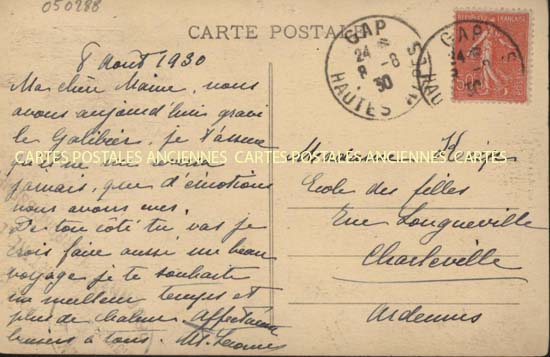 050288
CARTE POSTALE
GAP
24 *
8 -8
30
HAUTES ALPES
GAP
24 *
30
8 Août 1930
Ma chère Maine, nous
avons aujourd'hui gravi
le Galibier, je t'assure
CARTES POSTALES ANCIENNES CARTES POSTALES ANCIENNES CARTES POSTALES
que ne
jamais, que d'émotions
nous avons eues.
De ton côté tu vas je
crois faire aussi un beau
voyage je te souhaite
un meilleur temps et
plus de chaleur. Affectueux
baisers à tous.
Madame
École des filles
Rue Longueville
Charleville
Ardennes